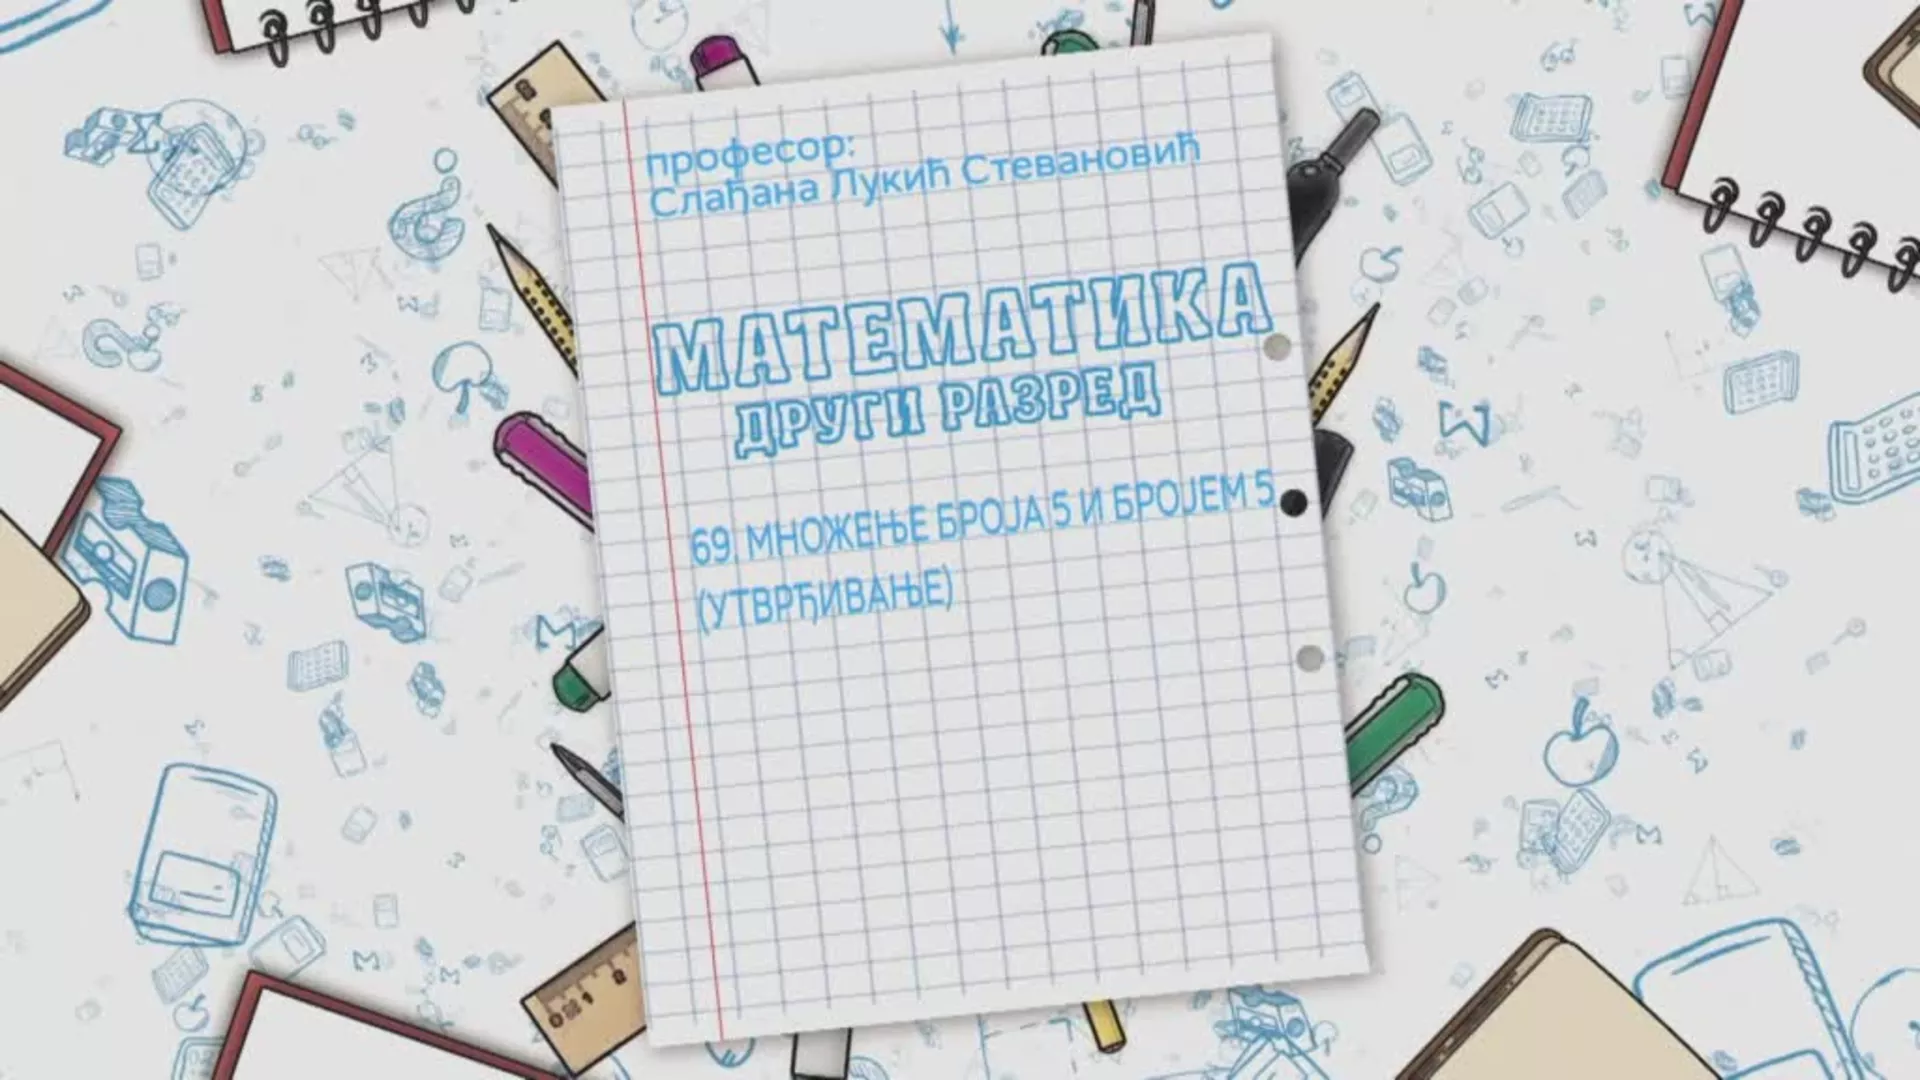 професор:
Слађана Лукић Стевановић
МАТЕМАТИКА
ДРУГИ РАЗРЕД
69. МНОЖЕЊЕ БРОЈА 5 И БРОЈЕМ 5
(УТВРЂИВАЊЕ)